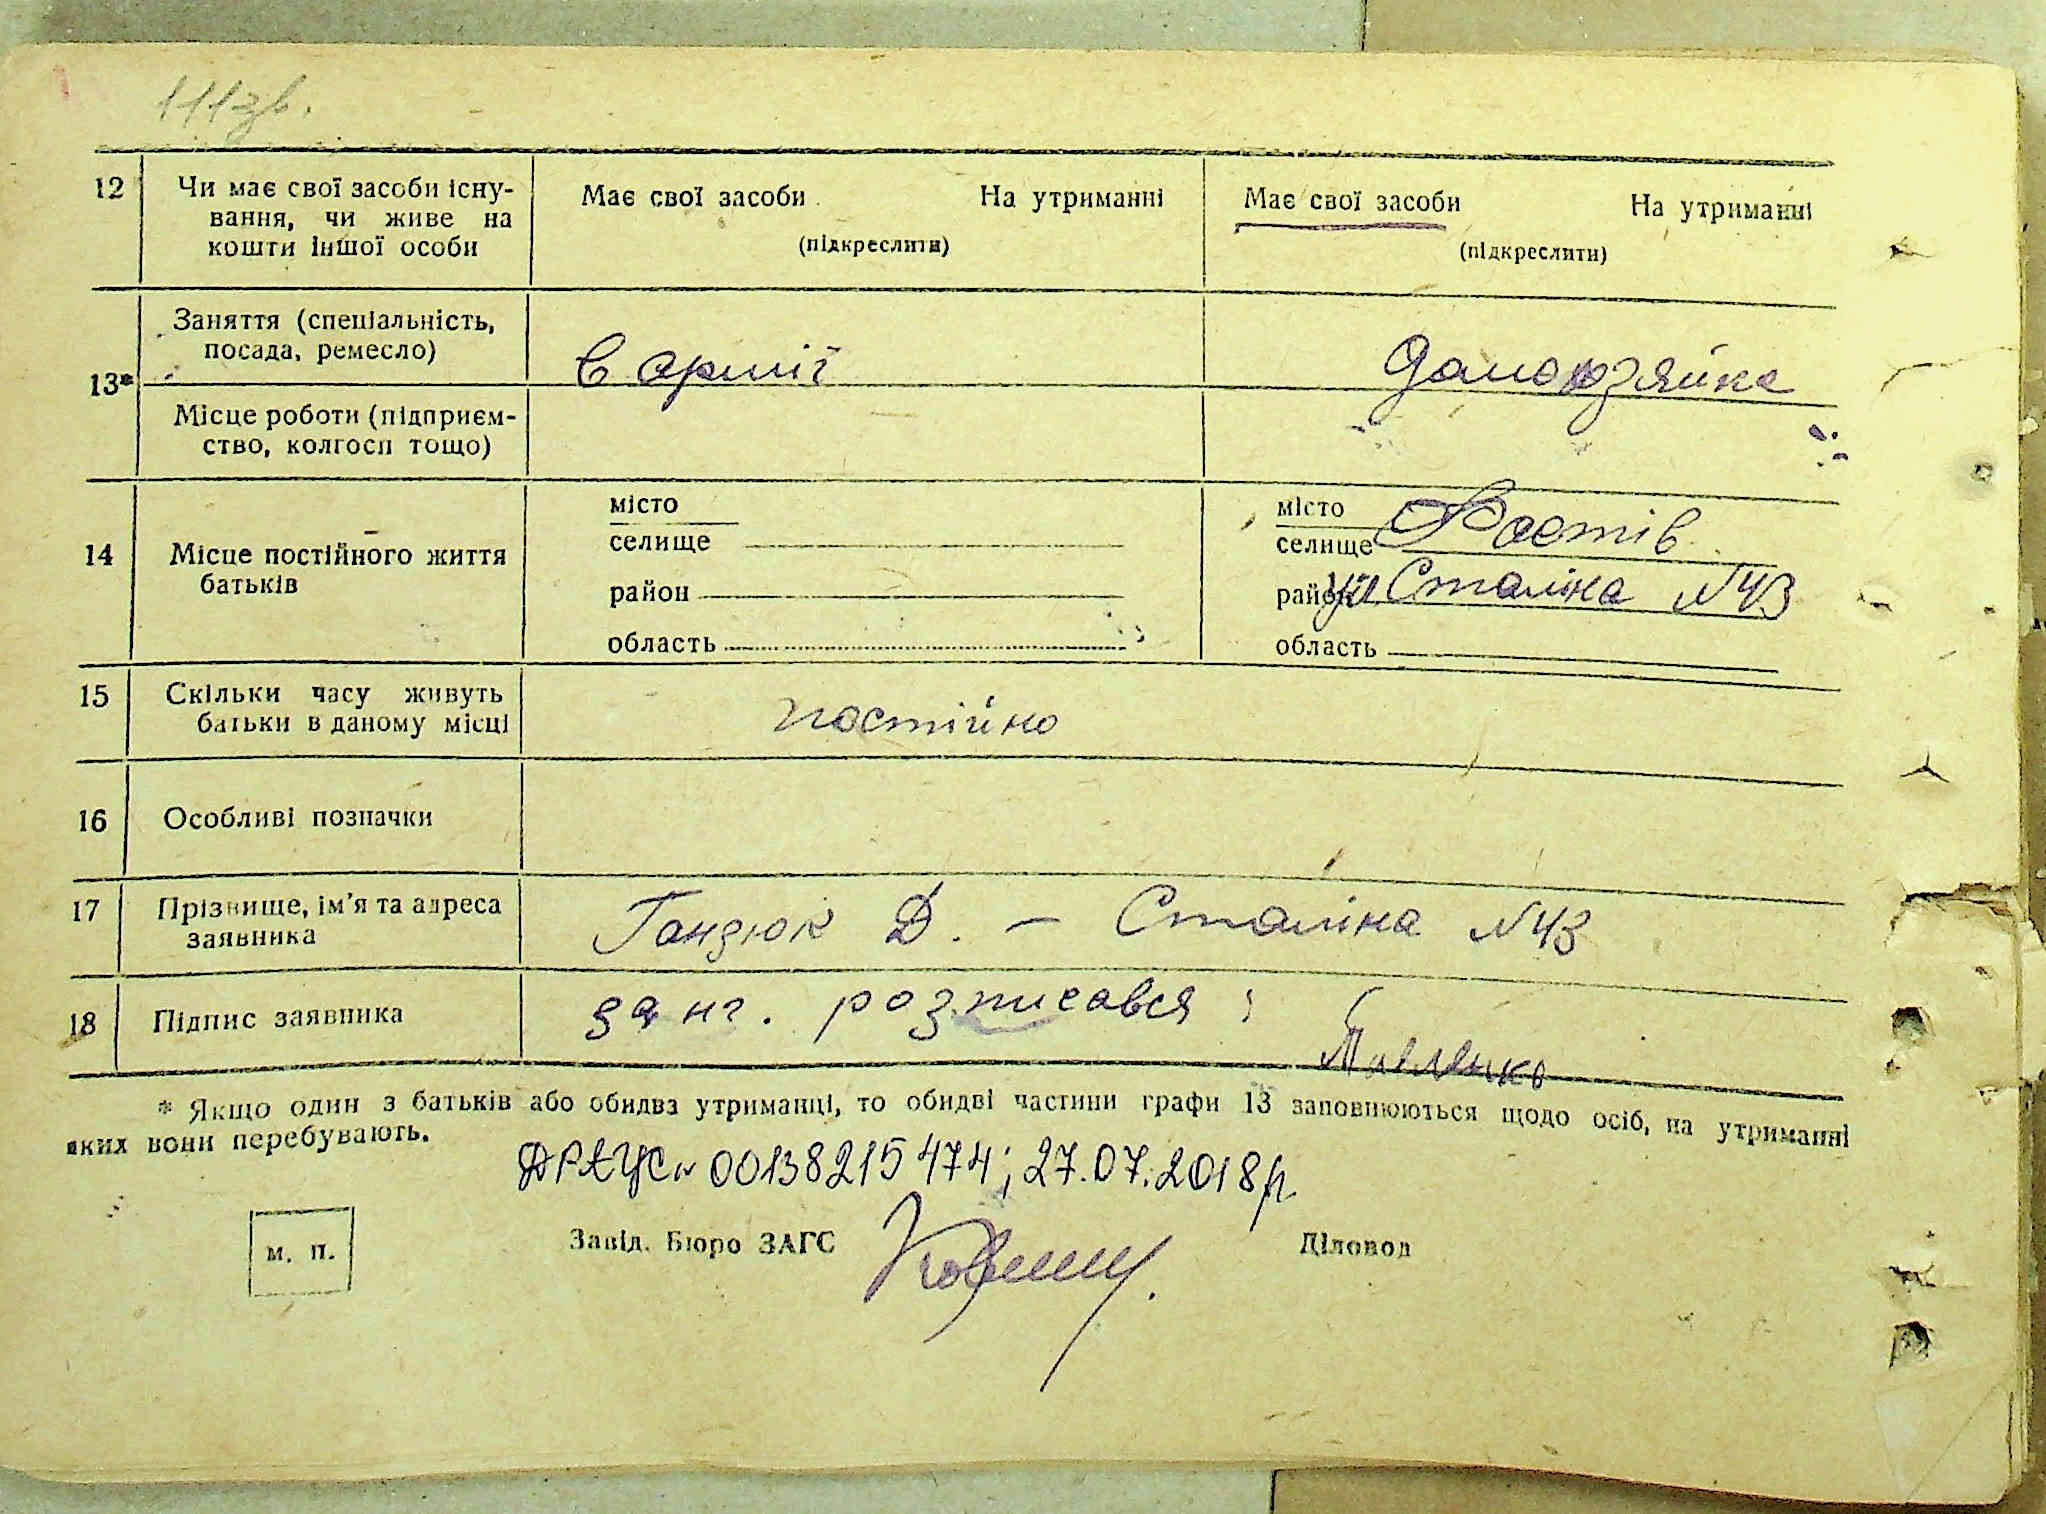 111зв.
12 Чи має свої засоби існу-
вання, чи живе на
кошти іншої особи
Має свої засоби На утриманні
(підкреслити)
Має свої засоби На утриманні
(підкреслити)
13*
Заняття (спеціальність,
посада, ремесло)
в армії
домохзяйка
Місце роботи (підприєм-
ство, колгосп тощо)
14 Місце постійного життя
батьків
місто
селище
район
область
місто
селище Фастів
район ул Сталіна №43
область
15 Скільки часу живуть
батьки в даному місці
постійно
16 Особливі позначки
17 Прізвище, ім'я та адреса
заявника
Гандзюк Д. – Сталіна №43
18 Підпис заявника
за нг. розписався
* Якщо один з батьків або обидва утриманці, то обидві частини графи 13 заповнюються щодо осіб, на утриманні
яких вони перебувають.
ДРАЦСн 00138215474; 27.07.2018р.
м. п.
Завід. Бюро ЗАГС
Діловод